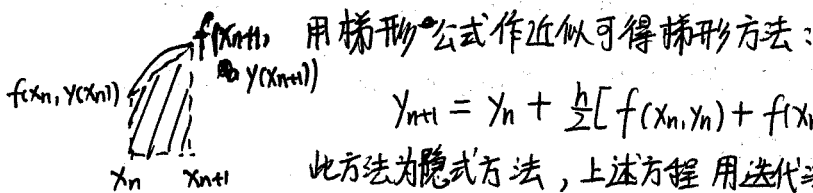 f(xn+1,
y(xn+1))
用梯形公式作近似可得梯形方法：
f(xn, y(xn))
yn+1 = yn + h/2[ f(xn, yn) + f(x
xn
xn+1
此方法为隐式方法，上述方程用迭代